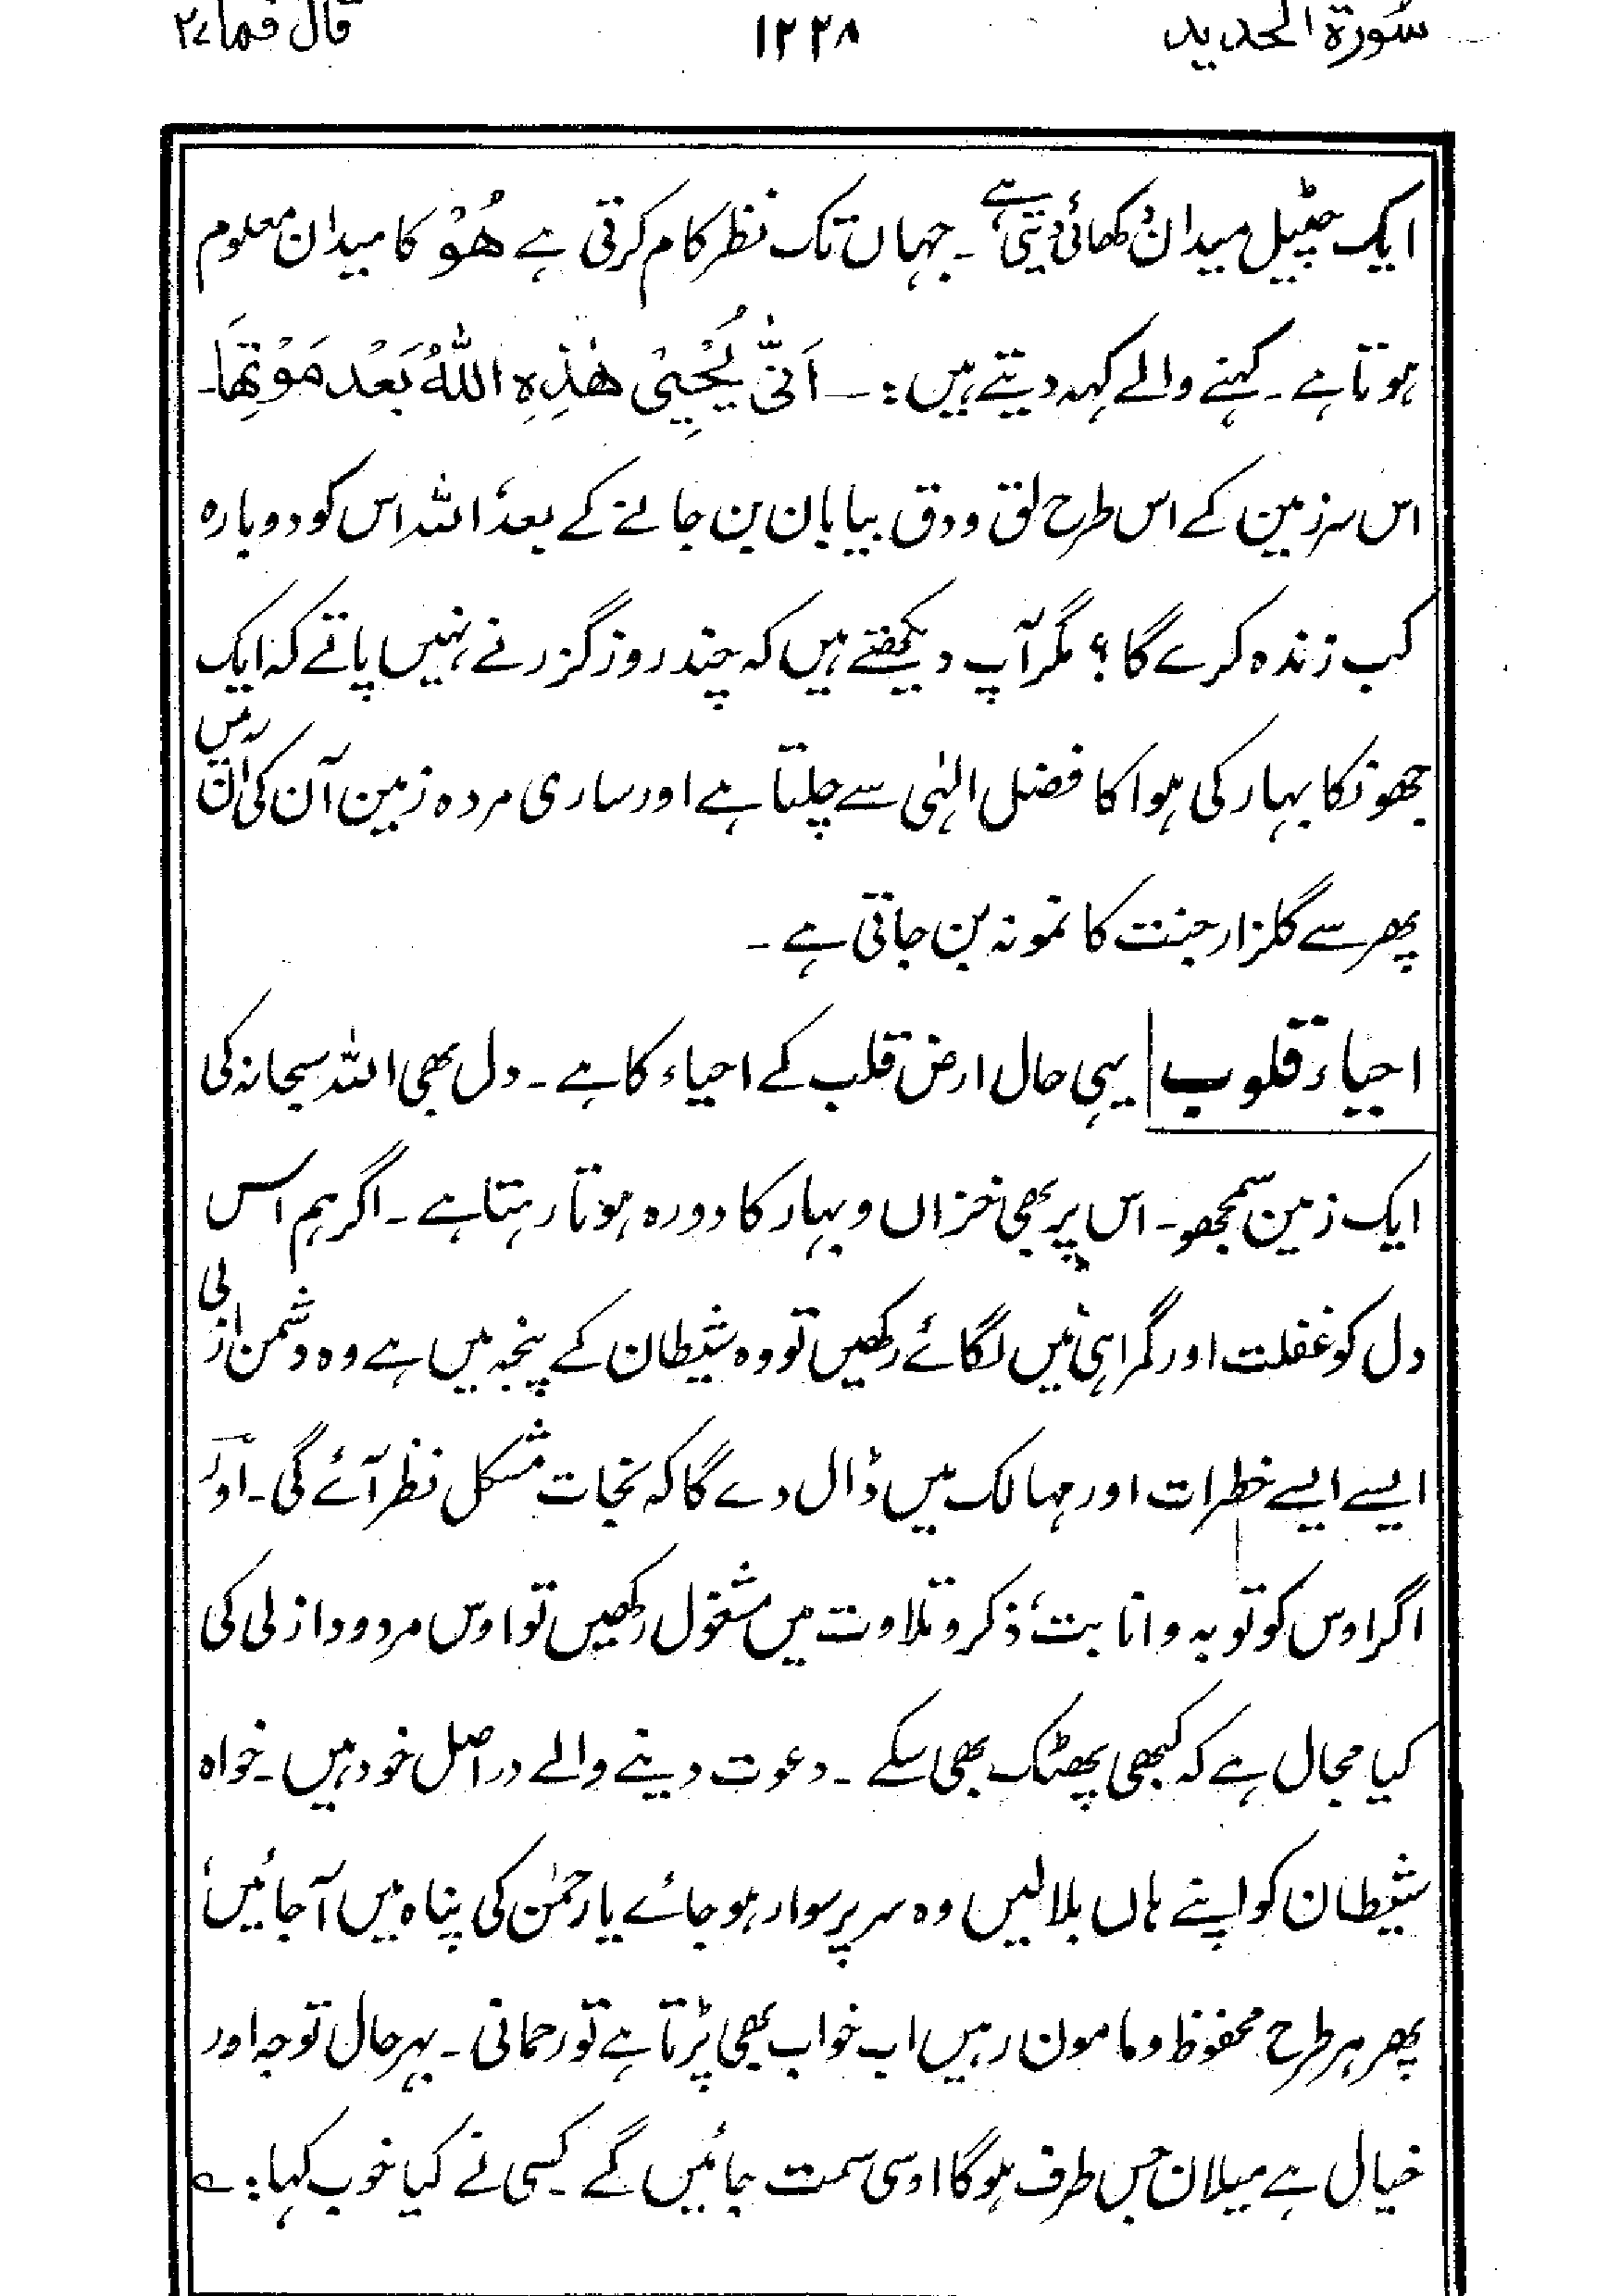 سُورۃ الحدید ۱۲۲۸ قال فما ۲۷
ایک چٹیل میدان دکھائی دیتی ہے ۔ جہاں تک نظر کام کرتی ہے ھُوْ کا میدان معلوم
ہوتا ہے ۔ کہنے والے کہہ دیتے ہیں :ـ اَنّٰی یُحْیِیْ ھٰذِہِ اللّٰہُ بَعْدَ مَوْتِھَا ۔
اس سرزمین کے اس طرح لق و دق بیابان بن جانے کے بعد، اللہ اِس کو دوبارہ
کب زندہ کرے گا؟ مگر آپ دیکھتے ہیں کہ چند روز گزرنے نہیں پاتے کہ ایک
جھونکا بہار کی ہوا کا فضل الٰہی سے چلتا ہے اور ساری مردہ زمین آن کی آن میں
پھر سے گلزار جنت کا نمونہ بن جاتی ہے ۔
احیاء قلوب | یہی حال ارض قلب کے احیاء کا ہے ۔ دل بھی اللہ سبحانہ کی
ایک زمین سمجھو ۔ اس پر بھی خزاں و بہار کا دورہ ہوتا رہتا ہے ۔ اگر ہم اس
دل کو غفلت اور گمراہی میں لگائے رکھیں تو وہ شیطان کے پنجہ میں ہے وہ دشمن ازلی
ایسے ایسے خطرات اور مہالک میں ڈال دے گا کہ نجات مشکل نظر آئے گی ۔ اور
اگر اوس کو توبہ و انابت، ذکر و تلاوت میں مشغول رکھیں تو اوس مردود ازلی کی
کیا مجال ہے کہ کبھی پھٹک بھی سکے ۔ دعوت دینے والے دراصل خود ہیں ۔ خواہ
شیطان کو اپنے ہاں بلالیں وہ سر پر سوار ہو جائے یا رحمٰن کی پناہ میں آجائیں،
پھر ہر طرح محفوظ و مامون رہیں اب خواب بھی پڑتا ہے تو رحمانی ۔ بہرحال توجہ اور
خیال ہے میلان جس طرف ہوگا اوسی سمت جائیں گے ۔ کسی نے کیا خوب کہا :ـ ؎